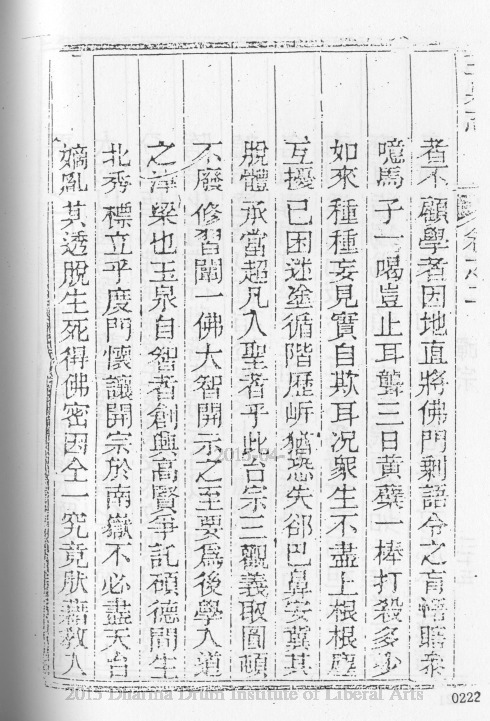 者不顧學者因地直將佛門剩語令之盲
噫馬子一喝豈止耳聾三日黃蘗一棒打殺多少
如來種種妄見實自欺耳况衆生不盡上根根塵
互擾已困迷塗循階歷㟁猶恐失郤巴鼻安冀其
脫體承當超凡入聖者乎此台宗三觀義取圓頓
不廢修習闡一佛大智開示之至要爲後學入道
之津梁也玉泉自智者創興高賢爭託碩德間生
北秀標立乎度門懷讓開宗於南嶽不必盡天台
嫡胤其透脫生死得佛密因仝一究竟猒藉教入
卷之二
2015 Dharma Drum Institute of Liberal Arts
0222